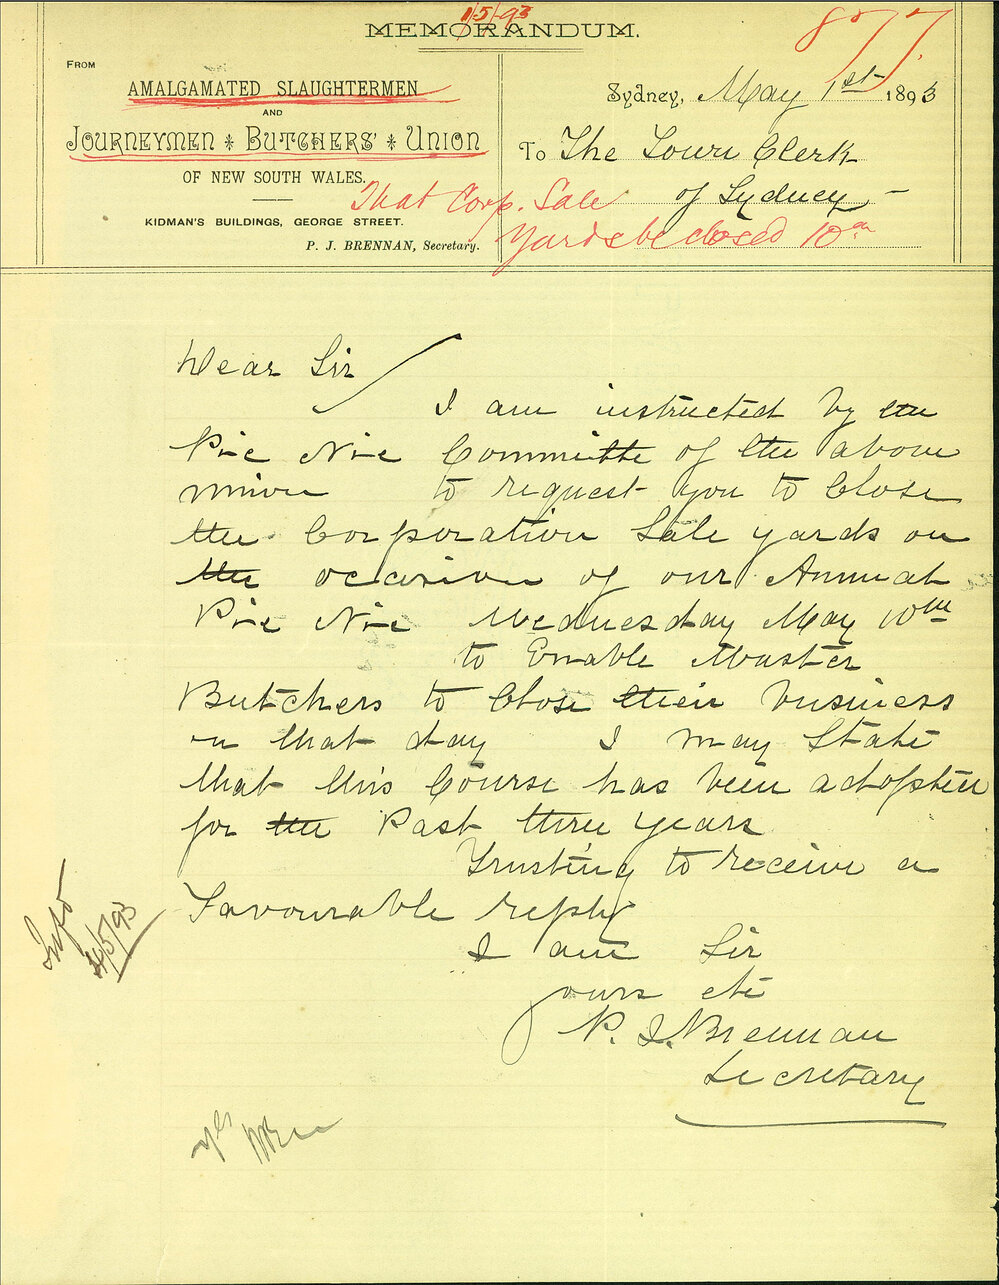 1/5/93
MEMORANDUM.
877
FROM
AMALGAMATED SLAUGHTERMEN
AND
JOURNEYMEN * BUTCHERS' * UNION
OF NEW SOUTH WALES.
KIDMAN'S BUILDINGS, GEORGE STREET.
P. J. BRENNAN, Secretary.
Sydney, May 1st 1893
To The Town Clerk
of Sydney
That Corp. Sale
Yards be closed 10th
Dear Sir
I am instructed by the
Pic Nic Committe of the above
union to request you to Close
the Corporation Sale yards on
the occasion of our Annual
Pic Nic Wednesday May 10th
to Enable Master
Butchers to Close their business
on that day I may State
that this Course has been adopted
for the Past three years
Trusting to receive a
Favourable reply
I am Sir
yours etc
P. J. Brennan
Secretary
4/5/93
yes